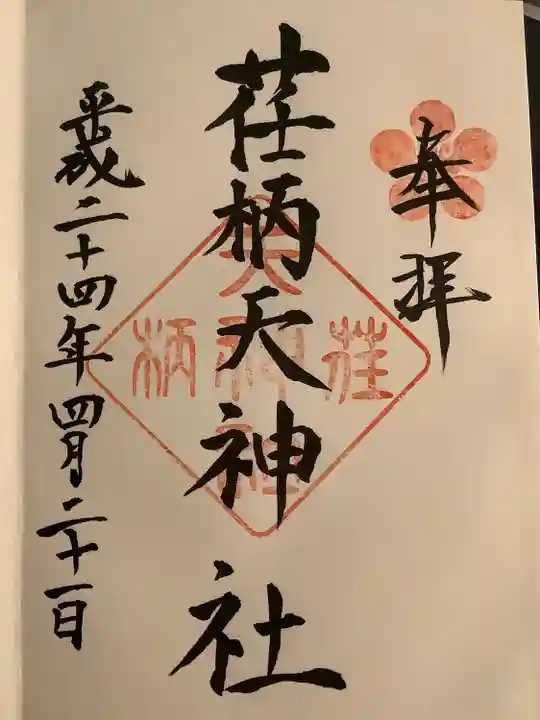 奉拝
荏柄天神社
平成二十四年四月二十一日
荏柄天神